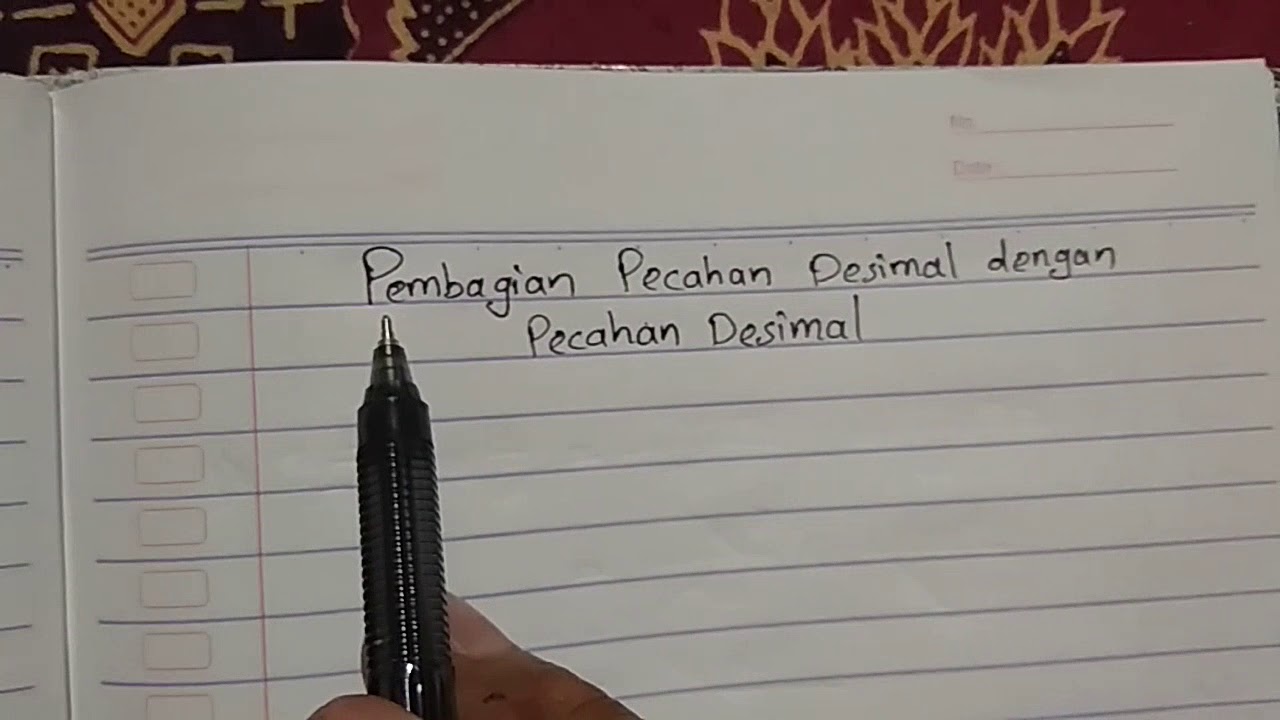 No
Date
Pembagian Pecahan Desimal dengan
Pecahan Desimal